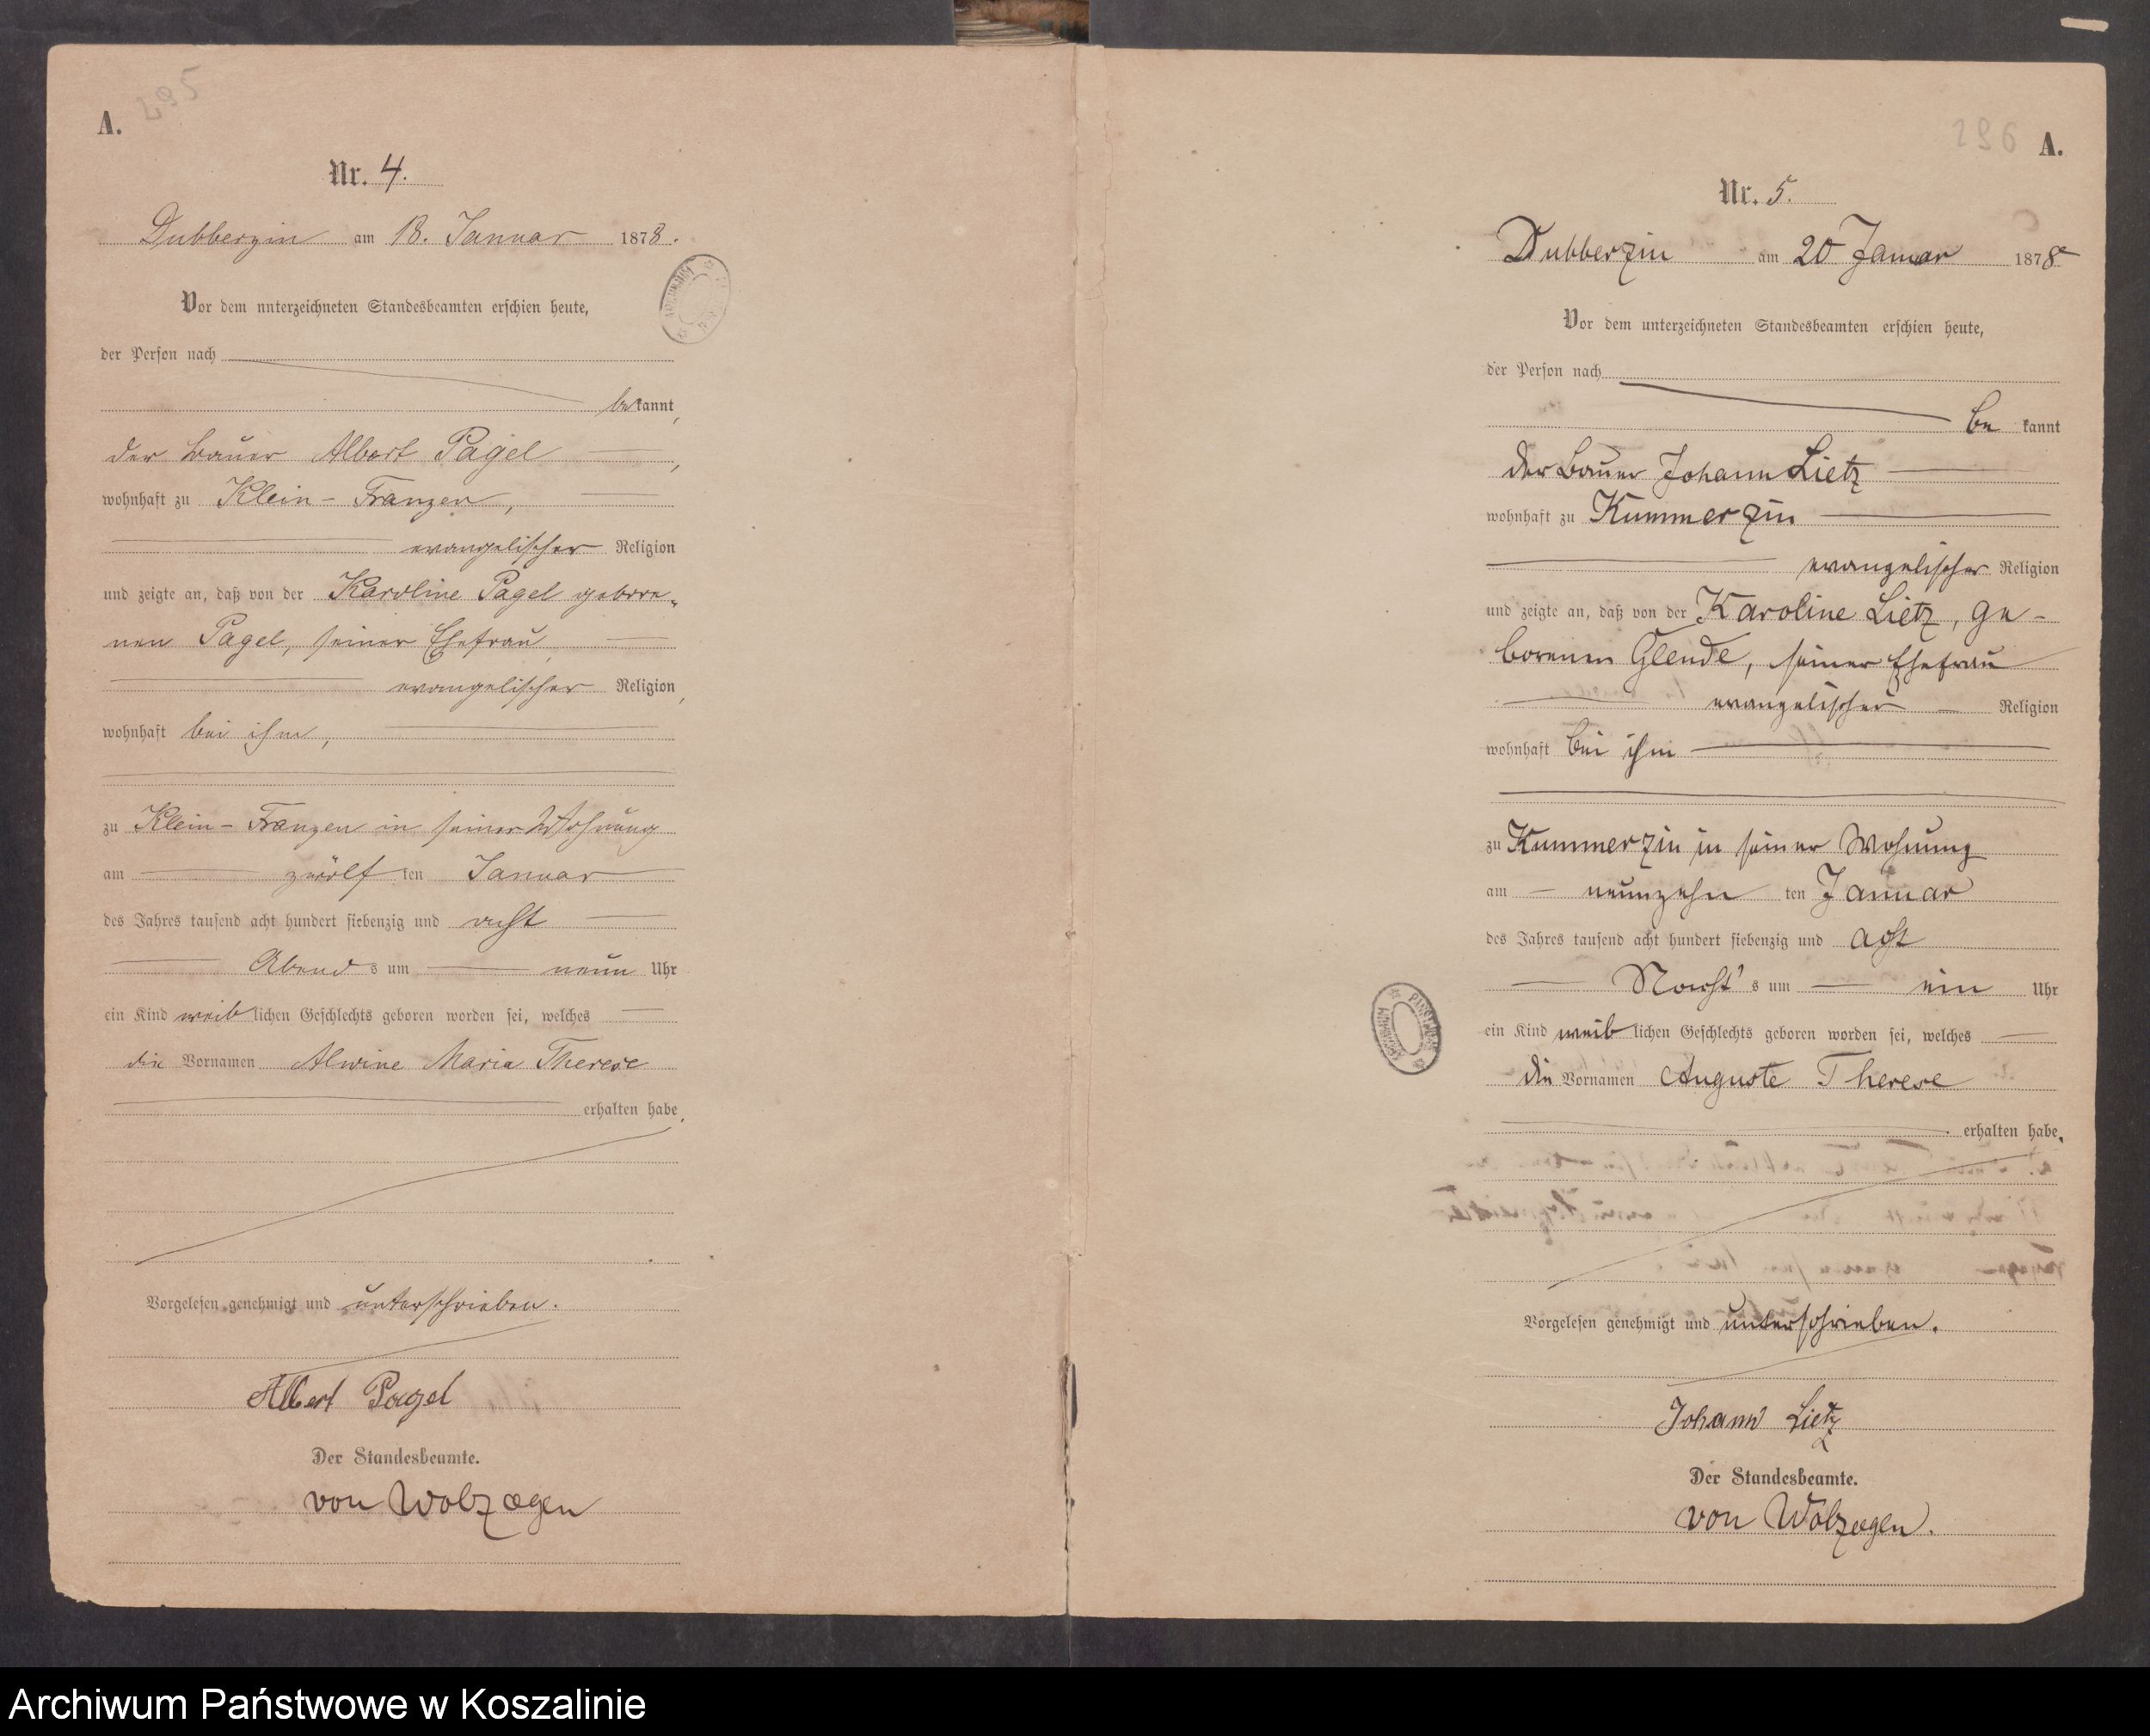 295
A.
Nr. 4.
Dubberzin am 18. Januar 1878.
Vor dem unterzeichneten Standesbeamten erschien heute,
der Person nach
bekannt,
der Bauer Albert Pagel,
wohnhaft zu Klein-Franzen,
evangelischer Religion
und zeigte an, daß von der Karoline Pagel gebore-
nen Pagel, seiner Ehefrau,
evangelischer Religion,
wohnhaft bei ihm,
zu Klein-Franzen in seiner Wohnung
am zwölf ten Januar
des Jahres tausend acht hundert siebenzig und acht
Abend s um neun Uhr
ein Kind weiblichen Geschlechts geboren worden sei, welches
die Vornamen Alwine Maria Therese
erhalten habe.
Vorgelesen, genehmigt und unterschrieben.
Albert Pagel
Der Standesbeamte.
von Wolzogen
296 A.
Nr. 5.
Dubberzin am 20 Januar 1878
Vor dem unterzeichneten Standesbeamten erschien heute,
der Person nach
be kannt
der Bauer Johann Lietz
wohnhaft zu Kummerzin
evangelischer Religion
und zeigte an, daß von der Karoline Lietz, ge-
borenen Glende, seiner Ehefrau
evangelischer Religion
wohnhaft bei ihm
zu Kummerzin in seiner Wohnung
am neunzehn ten Januar
des Jahres tausend acht hundert siebenzig und acht
Nacht's um ein Uhr
ein Kind weiblichen Geschlechts geboren worden sei, welches
die Vornamen Auguste Therese
erhalten habe.
Vorgelesen genehmigt und unterschrieben.
Johann Lietz
Der Standesbeamte.
von Wolzogen.
Archiwum Państwowe w Koszalinie